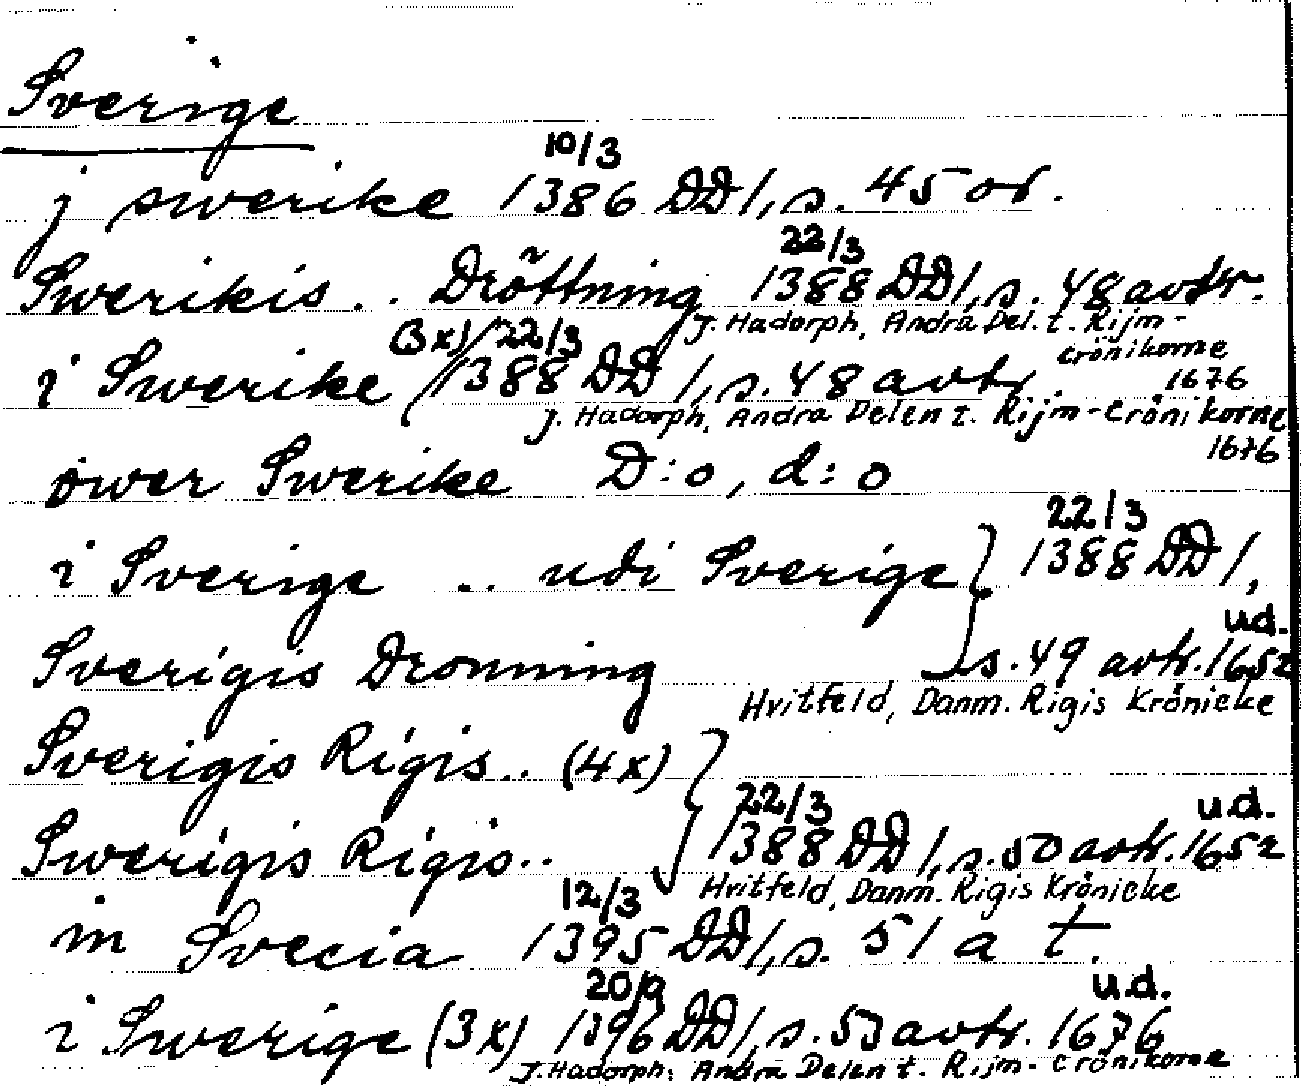 Sverige
10/3
j swerike 1386 DD1, s. 45 or.
22/3
Swerikis . . Dröttning 1388 DD1, s. 48 avtr.
J. Hadorph, Andra Del. t. Rijm-
crönikorne
1676
(3x) 22/3
i Swerike 1388 DD1, s. 48 avtr.
J. Hadorph, Andra Delen t. Rijm-Crönikorne
1676
öwer Swerike D:o, d:o
22/3
i Sverige .. udi Sverige } 1388 DD1,
ud.
Sverigis Dronning s. 49 avtr. 1652
Hvitfeld, Danm. Rigis Krönicke
Sverigis Rigis .. (4x) }
22/3 u.d.
Swerigis Rigis .. 1388 DD1, s. 50 avtr. 1652
Hvitfeld, Danm. Rigis Krönicke
12/3
in Svecia 1395 DD1, s. 51 a t.
20/9 u.d.
i Swerige (3x) 1396 DD1, s. 53 avtr. 1676
J. Hadorph, Andra Delen t. Rijm-Crönikorne